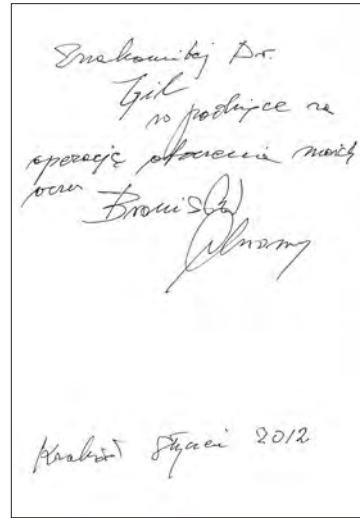 Znakomitej Dr.
Gil
w podzięce za
operację otworzenia moich
oczu
Bronisław
Chromy
Kraków styczeń 2012